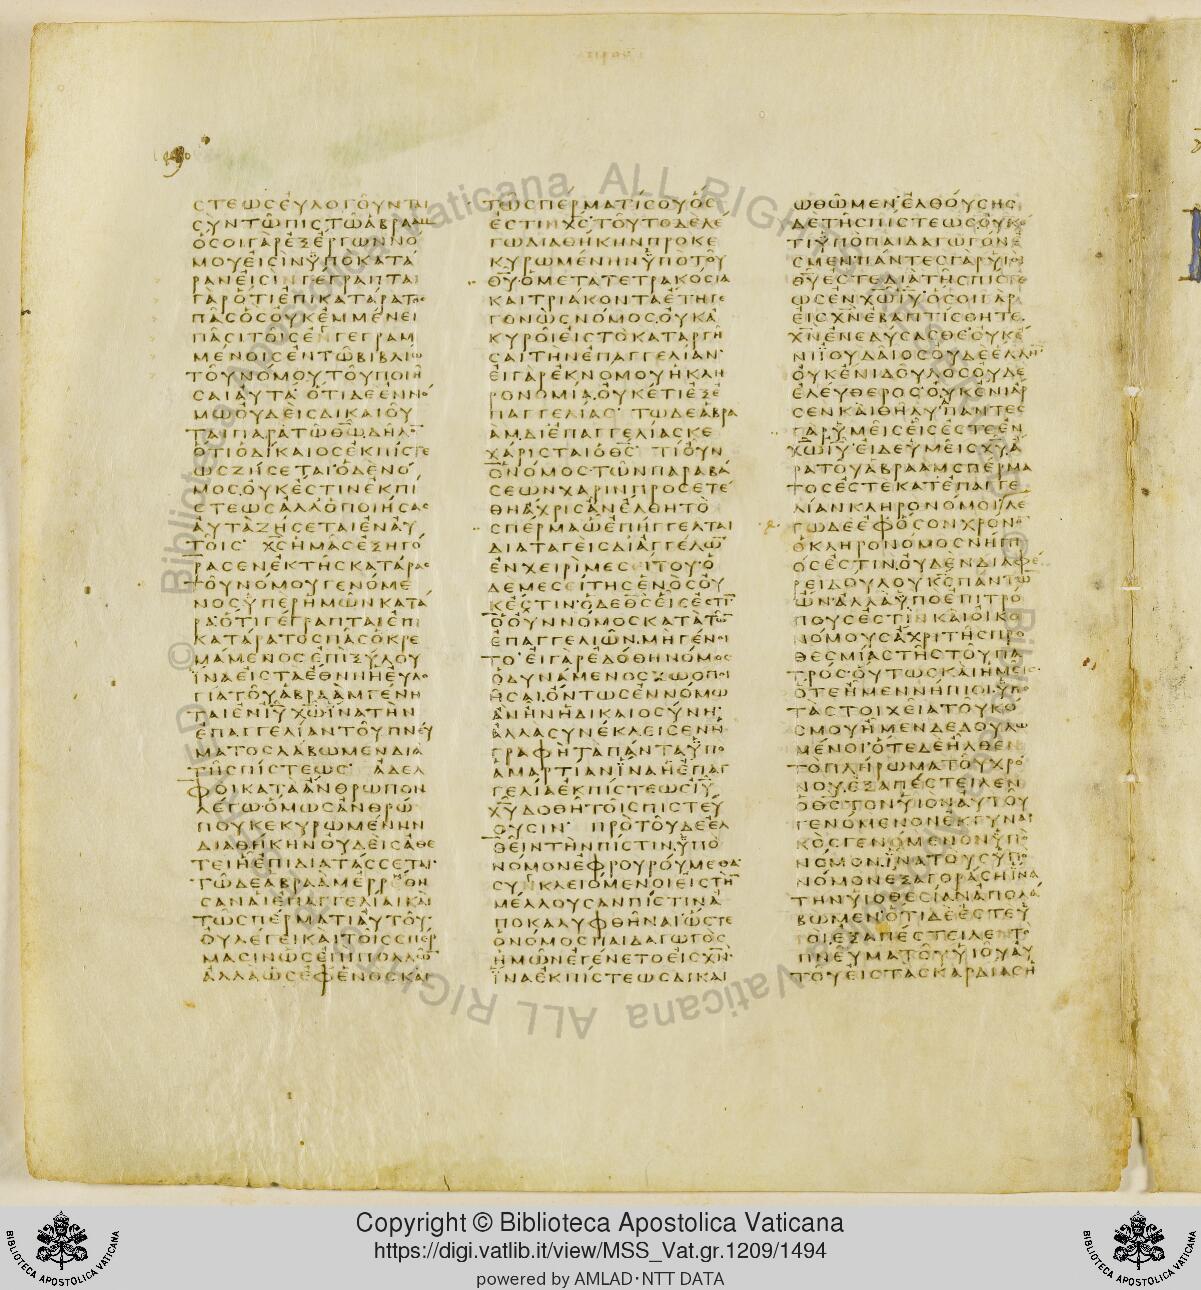 ϹΤΕΩϹΕΥΛΟΓΟΥΝΤΑΙ
ϹΥΝΤΩΠΙϹΤΩΑΒΡΑΑΜ
ΟϹΟΙΓΑΡΕΞΕΡΓΩΝΝΟ
ΜΟΥΕΙϹΙΝΥΠΟΚΑΤΑ
ΡΑΝΕΙϹΙΝΓΕΓΡΑΠΤΑΙ
ΓΑΡΟΤΙΕΠΙΚΑΤΑΡΑΤΟϹ
ΠΑϹΟϹΟΥΚΕΜΜΕΝΕΙ
ΠΑϹΙΤΟΙϹΕΓΓΕΓΡΑΜ
ΜΕΝΟΙϹΕΝΤΩΒΙΒΛΙΩ
ΤΟΥΝΟΜΟΥΤΟΥΠΟΙΗ
ϹΑΙΑΥΤΑ ΟΤΙΔΕΕΝΝΟ
ΜΩΟΥΔΕΙϹΔΙΚΑΙΟΥ
ΤΑΙΠΑΡΑΤΩΘΩΔΗΛΟΝ
ΟΤΙΟΔΙΚΑΙΟϹΕΚΠΙϹΤΕ
ΩϹΖΗϹΕΤΑΙΟΔΕΝΟ
ΜΟϹΟΥΚΕϹΤΙΝΕΚΠΙ
ϹΤΕΩϹΑΛΛΟΠΟΙΗϹΑϹ
ΑΥΤΑΖΗϹΕΤΑΙΕΝΑΥ
ΤΟΙϹ ΧϹΗΜΑϹΕΞΗΓΟ
ΡΑϹΕΝΕΚΤΗϹΚΑΤΑΡΑϹ
ΤΟΥΝΟΜΟΥΓΕΝΟΜΕ
ΝΟϹΥΠΕΡΗΜΩΝΚΑΤΑ
ΡΑΟΤΙΓΕΓΡΑΠΤΑΙΕΠΙ
ΚΑΤΑΡΑΤΟϹΠΑϹΟΚΡΕ
ΜΑΜΕΝΟϹΕΠΙΞΥΛΟΥ
ΙΝΑΕΙϹΤΑΕΘΝΗΗΕΥΛΟ
ΓΙΑΤΟΥΑΒΡΑΑΜΓΕΝΗ
ΤΑΙΕΝΙΥΧΩΙΝΑΤΗΝ
ΕΠΑΓΓΕΛΙΑΝΤΟΥΠΝΕΥ
ΜΑΤΟϹΛΑΒΩΜΕΝΔΙΑ
ΤΗϹΠΙϹΤΕΩϹ ΑΔΕΛ
ΦΟΙΚΑΤΑΑΝΘΡΩΠΟΝ
ΛΕΓΩΟΜΩϹΑΝΘΡΩ
ΠΟΥΚΕΚΥΡΩΜΕΝΗΝ
ΔΙΑΘΗΚΗΝΟΥΔΕΙϹΑΘΕ
ΤΕΙΗΕΠΙΔΙΑΤΑϹϹΕΤΑΙ
ΤΩΔΕΑΒΡΑΑΜΕΡΡΗΘΗ
ϹΑΝΑΙΕΠΑΓΓΕΛΙΑΙΚΑΙ
ΤΩϹΠΕΡΜΑΤΙΑΥΤΟΥ
ΟΥΛΕΓΕΙΚΑΙΤΟΙϹϹΠΕΡ
ΜΑϹΙΝΩϹΕΠΙΠΟΛΛΩ
ΑΛΛΑΩϹΕΦΕΝΟϹΚΑΙ
ΤΩϹΠΕΡΜΑΤΙϹΟΥΟϹ
ΕϹΤΙΝΧϹΤΟΥΤΟΔΕΛΕ
ΓΩΔΙΑΘΗΚΗΝΠΡΟΚΕ
ΚΥΡΩΜΕΝΗΝΥΠΟΤΟΥ
ΘΥΟΜΕΤΑΤΕΤΡΑΚΟϹΙΑ
ΚΑΙΤΡΙΑΚΟΝΤΑΕΤΗΓΕ
ΓΟΝΩϹΝΟΜΟϹΟΥΚΑ
ΚΥΡΟΙΕΙϹΤΟΚΑΤΑΡΓΗ
ϹΑΙΤΗΝΕΠΑΓΓΕΛΙΑΝ
ΕΙΓΑΡΕΚΝΟΜΟΥΗΚΛΗ
ΡΟΝΟΜΙΑΟΥΚΕΤΙΕΞΕ
ΠΑΓΓΕΛΙΑϹ ΤΩΔΕΑΒΡΑ
ΑΜΔΙΕΠΑΓΓΕΛΙΑϹΚΕ
ΧΑΡΙϹΤΑΙΟΘϹ ΤΙΟΥΝ
ΟΝΟΜΟϹΤΩΝΠΑΡΑΒΑ
ϹΕΩΝΧΑΡΙΝΠΡΟϹΕΤΕ
ΘΗΑΧΡΙϹΑΝΕΛΘΗΤΟ
ϹΠΕΡΜΑΩΕΠΗΓΓΕΛΤΑΙ
ΔΙΑΤΑΓΕΙϹΔΙΑΓΓΕΛΩ
ΕΝΧΕΙΡΙΜΕϹΕΙΤΟΥΟ
ΔΕΜΕϹΕΙΤΗϹΕΝΟϹΟΥ
ΚΕϹΤΙΝΟΔΕΘϹΕΙϹΕϹΤΙ
ΟΟΥΝΝΟΜΟϹΚΑΤΑΤΩ
ΕΠΑΓΓΕΛΙΩΝΜΗΓΕΝΟΙ
ΤΟ ΕΙΓΑΡΕΔΟΘΗΝΟΜΟϹ
ΟΔΥΝΑΜΕΝΟϹΖΩΟΠΟΙ
ΗϹΑΙΟΝΤΩϹΕΝΝΟΜΩ
ΑΝΗΝΗΔΙΚΑΙΟϹΥΝΗ
ΑΛΛΑϹΥΝΕΚΛΕΙϹΕΝΗ
ΓΡΑΦΗΤΑΠΑΝΤΑΥΠΟ
ΑΜΑΡΤΙΑΝΙΝΑΗΕΠΑΓ
ΓΕΛΙΑΕΚΠΙϹΤΕΩϹΙΥ
ΧΥΔΟΘΗΤΟΙϹΠΙϹΤΕΥ
ΟΥϹΙΝ ΠΡΟΤΟΥΔΕΕΛ
ΘΕΙΝΤΗΝΠΙϹΤΙΝΥΠΟ
ΝΟΜΟΝΕΦΡΟΥΡΟΥΜΕΘΑ
ϹΥΓΚΛΕΙΟΜΕΝΟΙΕΙϹΤΗ
ΜΕΛΛΟΥϹΑΝΠΙϹΤΙΝΑ
ΠΟΚΑΛΥΦΘΗΝΑΙΩϹΤΕ
ΟΝΟΜΟϹΠΑΙΔΑΓΩΓΟϹ
ΗΜΩΝΕΓΕΝΕΤΟΕΙϹΧΝ
ΙΝΑΕΚΠΙϹΤΕΩϹΔΙΚΑΙ
ΩΘΩΜΕΝΕΛΘΟΥϹΗϹ
ΔΕΤΗϹΠΙϹΤΕΩϹΟΥΚΕ
ΤΙΥΠΟΠΑΙΔΑΓΩΓΟΝΕ
ϹΜΕΝΠΑΝΤΕϹΓΑΡΥΙΟΙ
ΘΥΕϹΤΕΔΙΑΤΗϹΠΙϹΤΕ
ΩϹΕΝΧΩΙΥΟϹΟΙΓΑΡ
ΕΙϹΧΝΕΒΑΠΤΙϹΘΗΤΕ
ΧΝΕΝΕΔΥϹΑϹΘΕΟΥΚΕ
ΝΙΙΟΥΔΑΙΟϹΟΥΔΕΕΛΛΗΝ
ΟΥΚΕΝΙΔΟΥΛΟϹΟΥΔΕ
ΕΛΕΥΘΕΡΟϹΟΥΚΕΝΙΑΡ
ϹΕΝΚΑΙΘΗΛΥΠΑΝΤΕϹ
ΓΑΡΥΜΕΙϹΕΙϹΕϹΤΕΕΝ
ΧΩΙΥΕΙΔΕΥΜΕΙϹΧΥΑ
ΡΑΤΟΥΑΒΡΑΑΜϹΠΕΡΜΑ
ΤΟϹΕϹΤΕΚΑΤΕΠΑΓΓΕ
ΛΙΑΝΚΛΗΡΟΝΟΜΟΙΛΕ
ΓΩΔΕΕΦΟϹΟΝΧΡΟΝΟ
ΟΚΛΗΡΟΝΟΜΟϹΝΗΠΙ
ΟϹΕϹΤΙΝΟΥΔΕΝΔΙΑΦΕ
ΡΕΙΔΟΥΛΟΥΚϹΠΑΝΤΩ
ΩΝΑΛΛΑΥΠΟΕΠΙΤΡΟ
ΠΟΥϹΕϹΤΙΝΚΑΙΟΙΚΟ
ΝΟΜΟΥϹΑΧΡΙΤΗϹΠΡΟ
ΘΕϹΜΙΑϹΤΗϹΤΟΥΠΑ
ΤΡΟϹΟΥΤΩϹΚΑΙΗΜΕΙϹ
ΟΤΕΗΜΕΝΝΗΠΙΟΙΥΠΟ
ΤΑϹΤΟΙΧΕΙΑΤΟΥΚΟ
ϹΜΟΥΗΜΕΝΔΕΔΟΥΛΩ
ΜΕΝΟΙΟΤΕΔΕΗΛΘΕΝ
ΤΟΠΛΗΡΩΜΑΤΟΥΧΡΟ
ΝΟΥΕΞΑΠΕϹΤΕΙΛΕΝ
ΟΘϹΤΟΝΥΙΟΝΑΥΤΟΥ
ΓΕΝΟΜΕΝΟΝΕΚΓΥΝΑΙ
ΚΟϹΓΕΝΟΜΕΝΟΝΥΠΟ
ΝΟΜΟΝΙΝΑΤΟΥϹΥΠΟ
ΝΟΜΟΝΕΞΑΓΟΡΑϹΗΙΝΑ
ΤΗΝΥΙΟΘΕϹΙΑΝΑΠΟΛΑ
ΒΩΜΕΝΟΤΙΔΕΕϹΤΕΥ
ΙΟΙΕΞΑΠΕϹΤΕΙΛΕΝΤΟ
ΠΝΕΥΜΑΤΟΥΥΙΟΥΑΥ
ΤΟΥΕΙϹΤΑϹΚΑΡΔΙΑϹΗ
Copyright © Biblioteca Apostolica Vaticana
https://digi.vatlib.it/view/MSS_Vat.gr.1209/1494
powered by AMLAD·NTT DATA
BIBLIOTECA APOSTOLICA VATICANA
BIBLIOTECA APOSTOLICA VATICANA